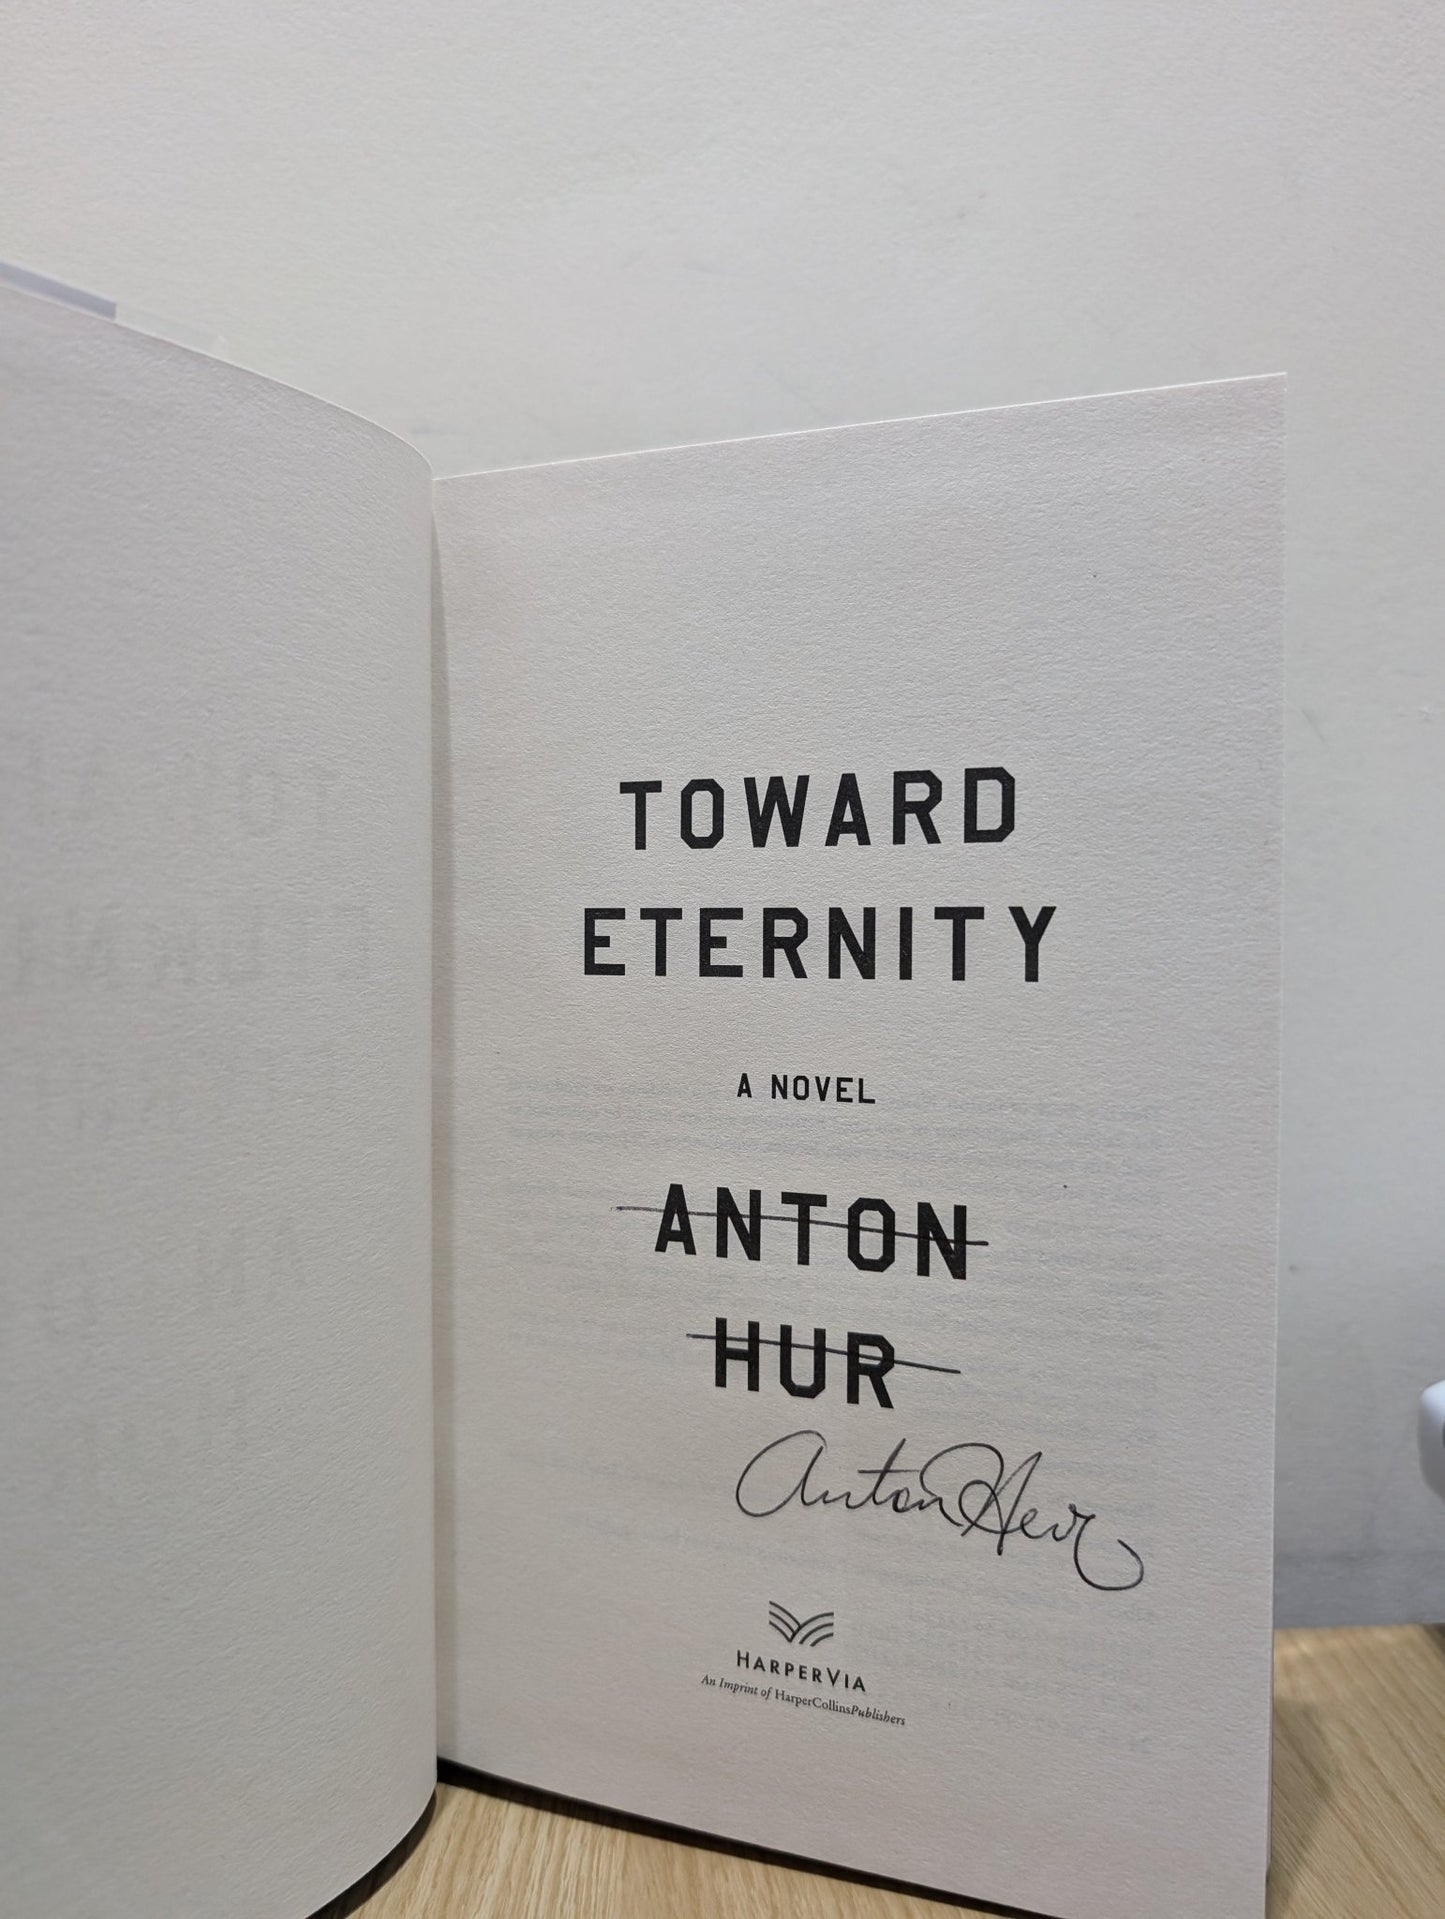 TOWARD
ETERNITY
A NOVEL
ANTON
HUR
Anton Hur
HARPERVIA
An Imprint of HarperCollinsPublishers